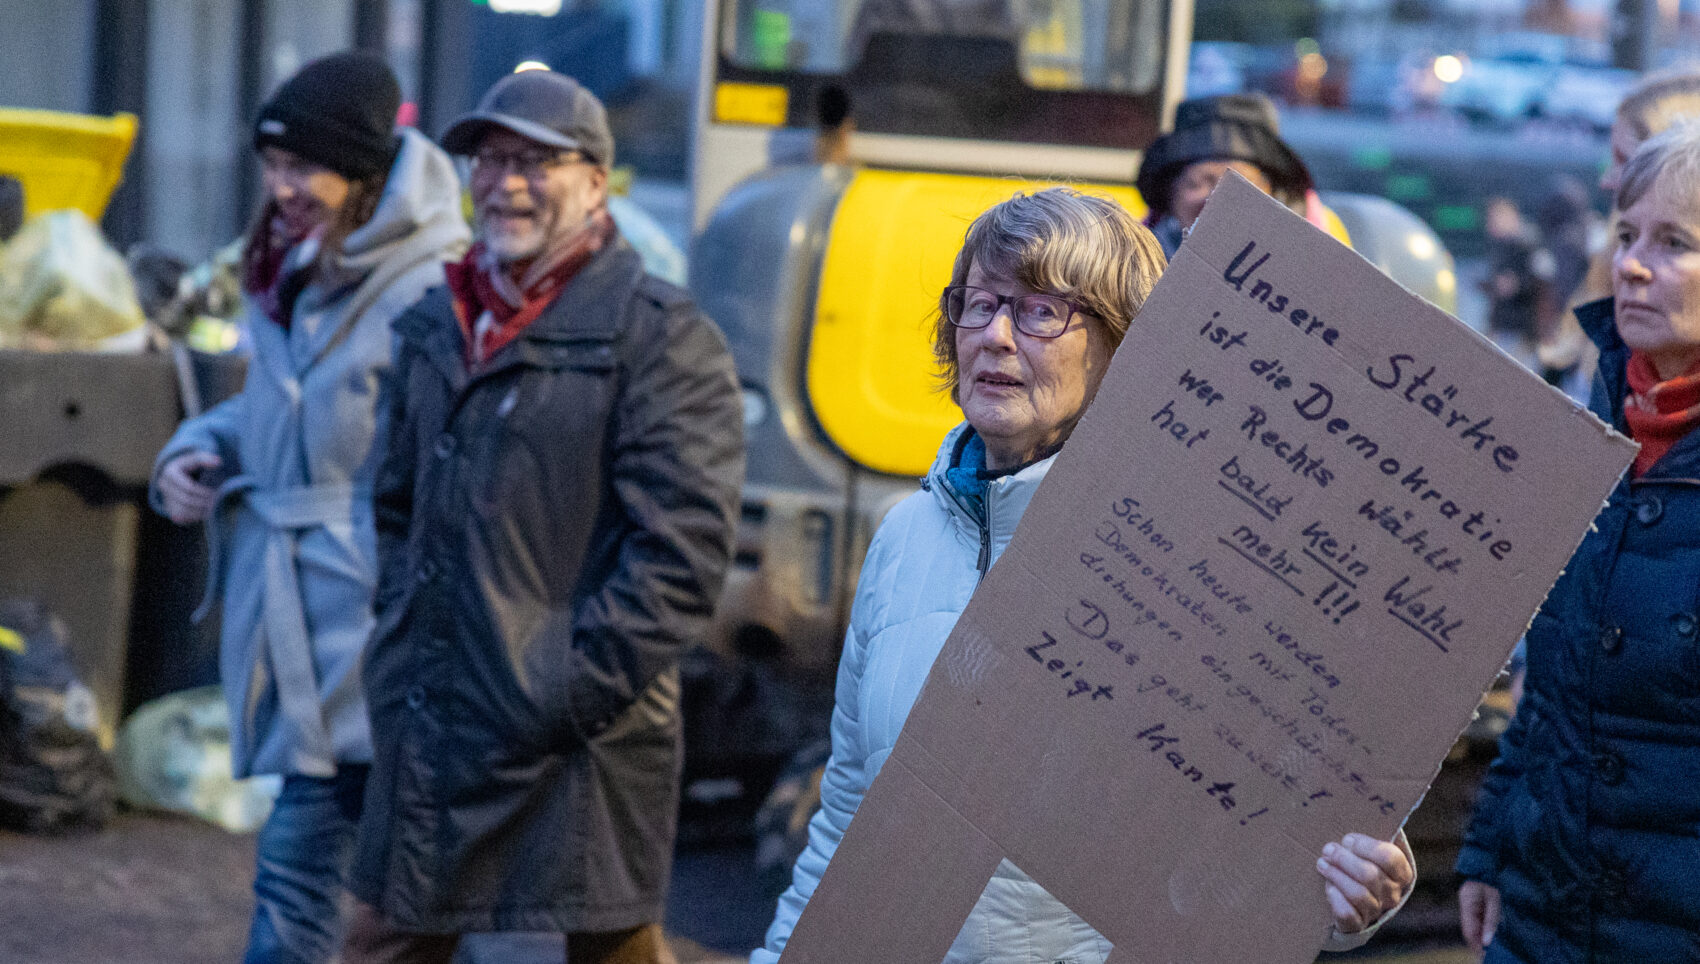 Unsere Stärke
ist die Demokratie
wer Rechts wählt
hat bald kein Wahl
mehr!!!
Schon heute werden
Demokraten mit Todes-
drohungen eingeschüchtert
Das geht zu weit!
Zeigt Kante!